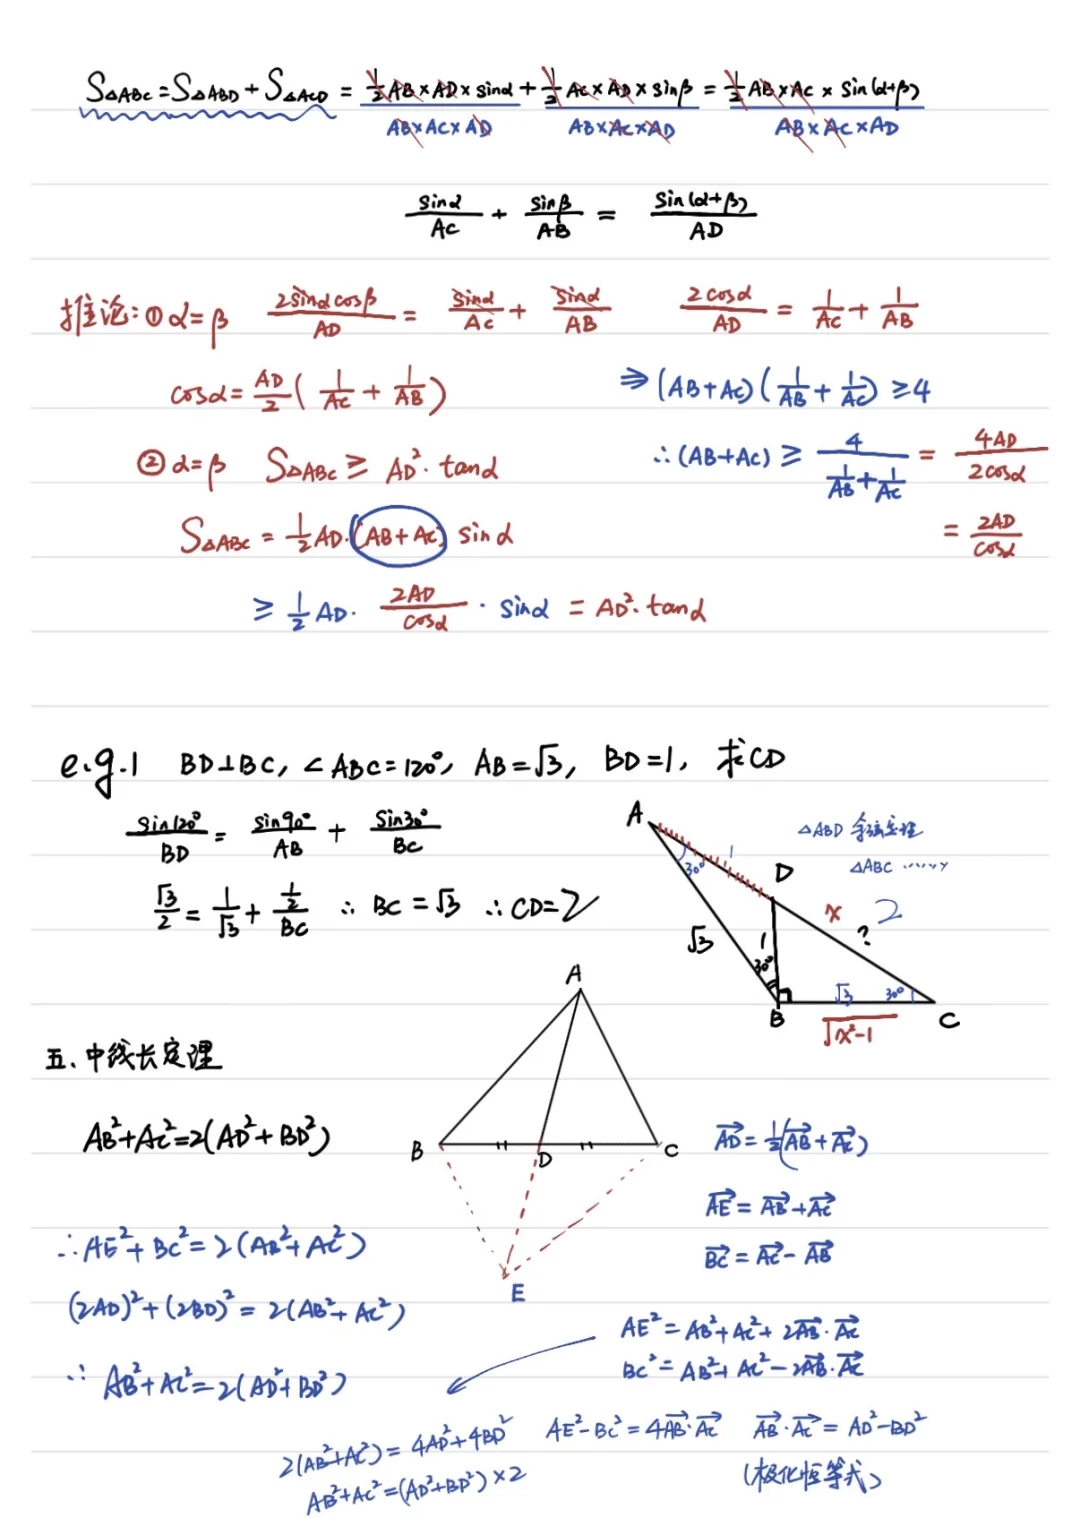 S△ABC = S△ABD + S△ACD = (½AB×AD×sinα)/(AB×AC×AD) + (½AC×AD×sinβ)/(AB×AC×AD) = (½AB×AC×sin(α+β))/(AB×AC×AD)
sinα/AC + sinβ/AB = sin(α+β)/AD
推论:① α=β 2sinαcosβ/AD = sinα/AC + sinα/AB 2cosα/AD = 1/AC + 1/AB
cosα = AD/2 (1/AC + 1/AB) ⇒ (AB+AC)(1/AB + 1/AC) ≥ 4
② α=β S△ABC ≥ AD²·tanα ∴(AB+AC) ≥ 4/(1/AB + 1/AC) = 4AD/2cosα
S△ABC = ½AD·(AB+AC) sinα = 2AD/cosα
≥ ½AD· 2AD/cosα · sinα = AD²·tanα
e.g.1 BD⊥BC, ∠ABC=120°, AB=√3, BD=1, 求CD
sin120°/BD = sin90°/AB + sin30°/BC
√3/2 = 1/√3 + ½/BC ∴ BC=√3 ∴CD=2
A
△ABD 余弦定理
△ABC ……
30°
1
D
x 2
?
√3
1
30°
B
√3
30°
C
√(x²-1)
五、中线长定理
AB²+AC²=2(AD²+BD²)
A
B
D
C
E
AD→ = ½(AB→+AC→)
AE→ = AB→+AC→
BC→ = AC→-AB→
∴AE²+BC²=2(AB²+AC²)
(2AD)²+(2BD)²=2(AB²+AC²)
∴ AB²+AC²=2(AD²+BD²)
AE²=AB²+AC²+2AB→·AC→
BC²=AB²+AC²-2AB→·AC→
2(AB²+AC²)=4AD²+4BD²
AB²+AC²=(AD²+BD²)×2
AE²-BC²=4AB→·AC→ AB→·AC→=AD²-BD²
(极化恒等式)